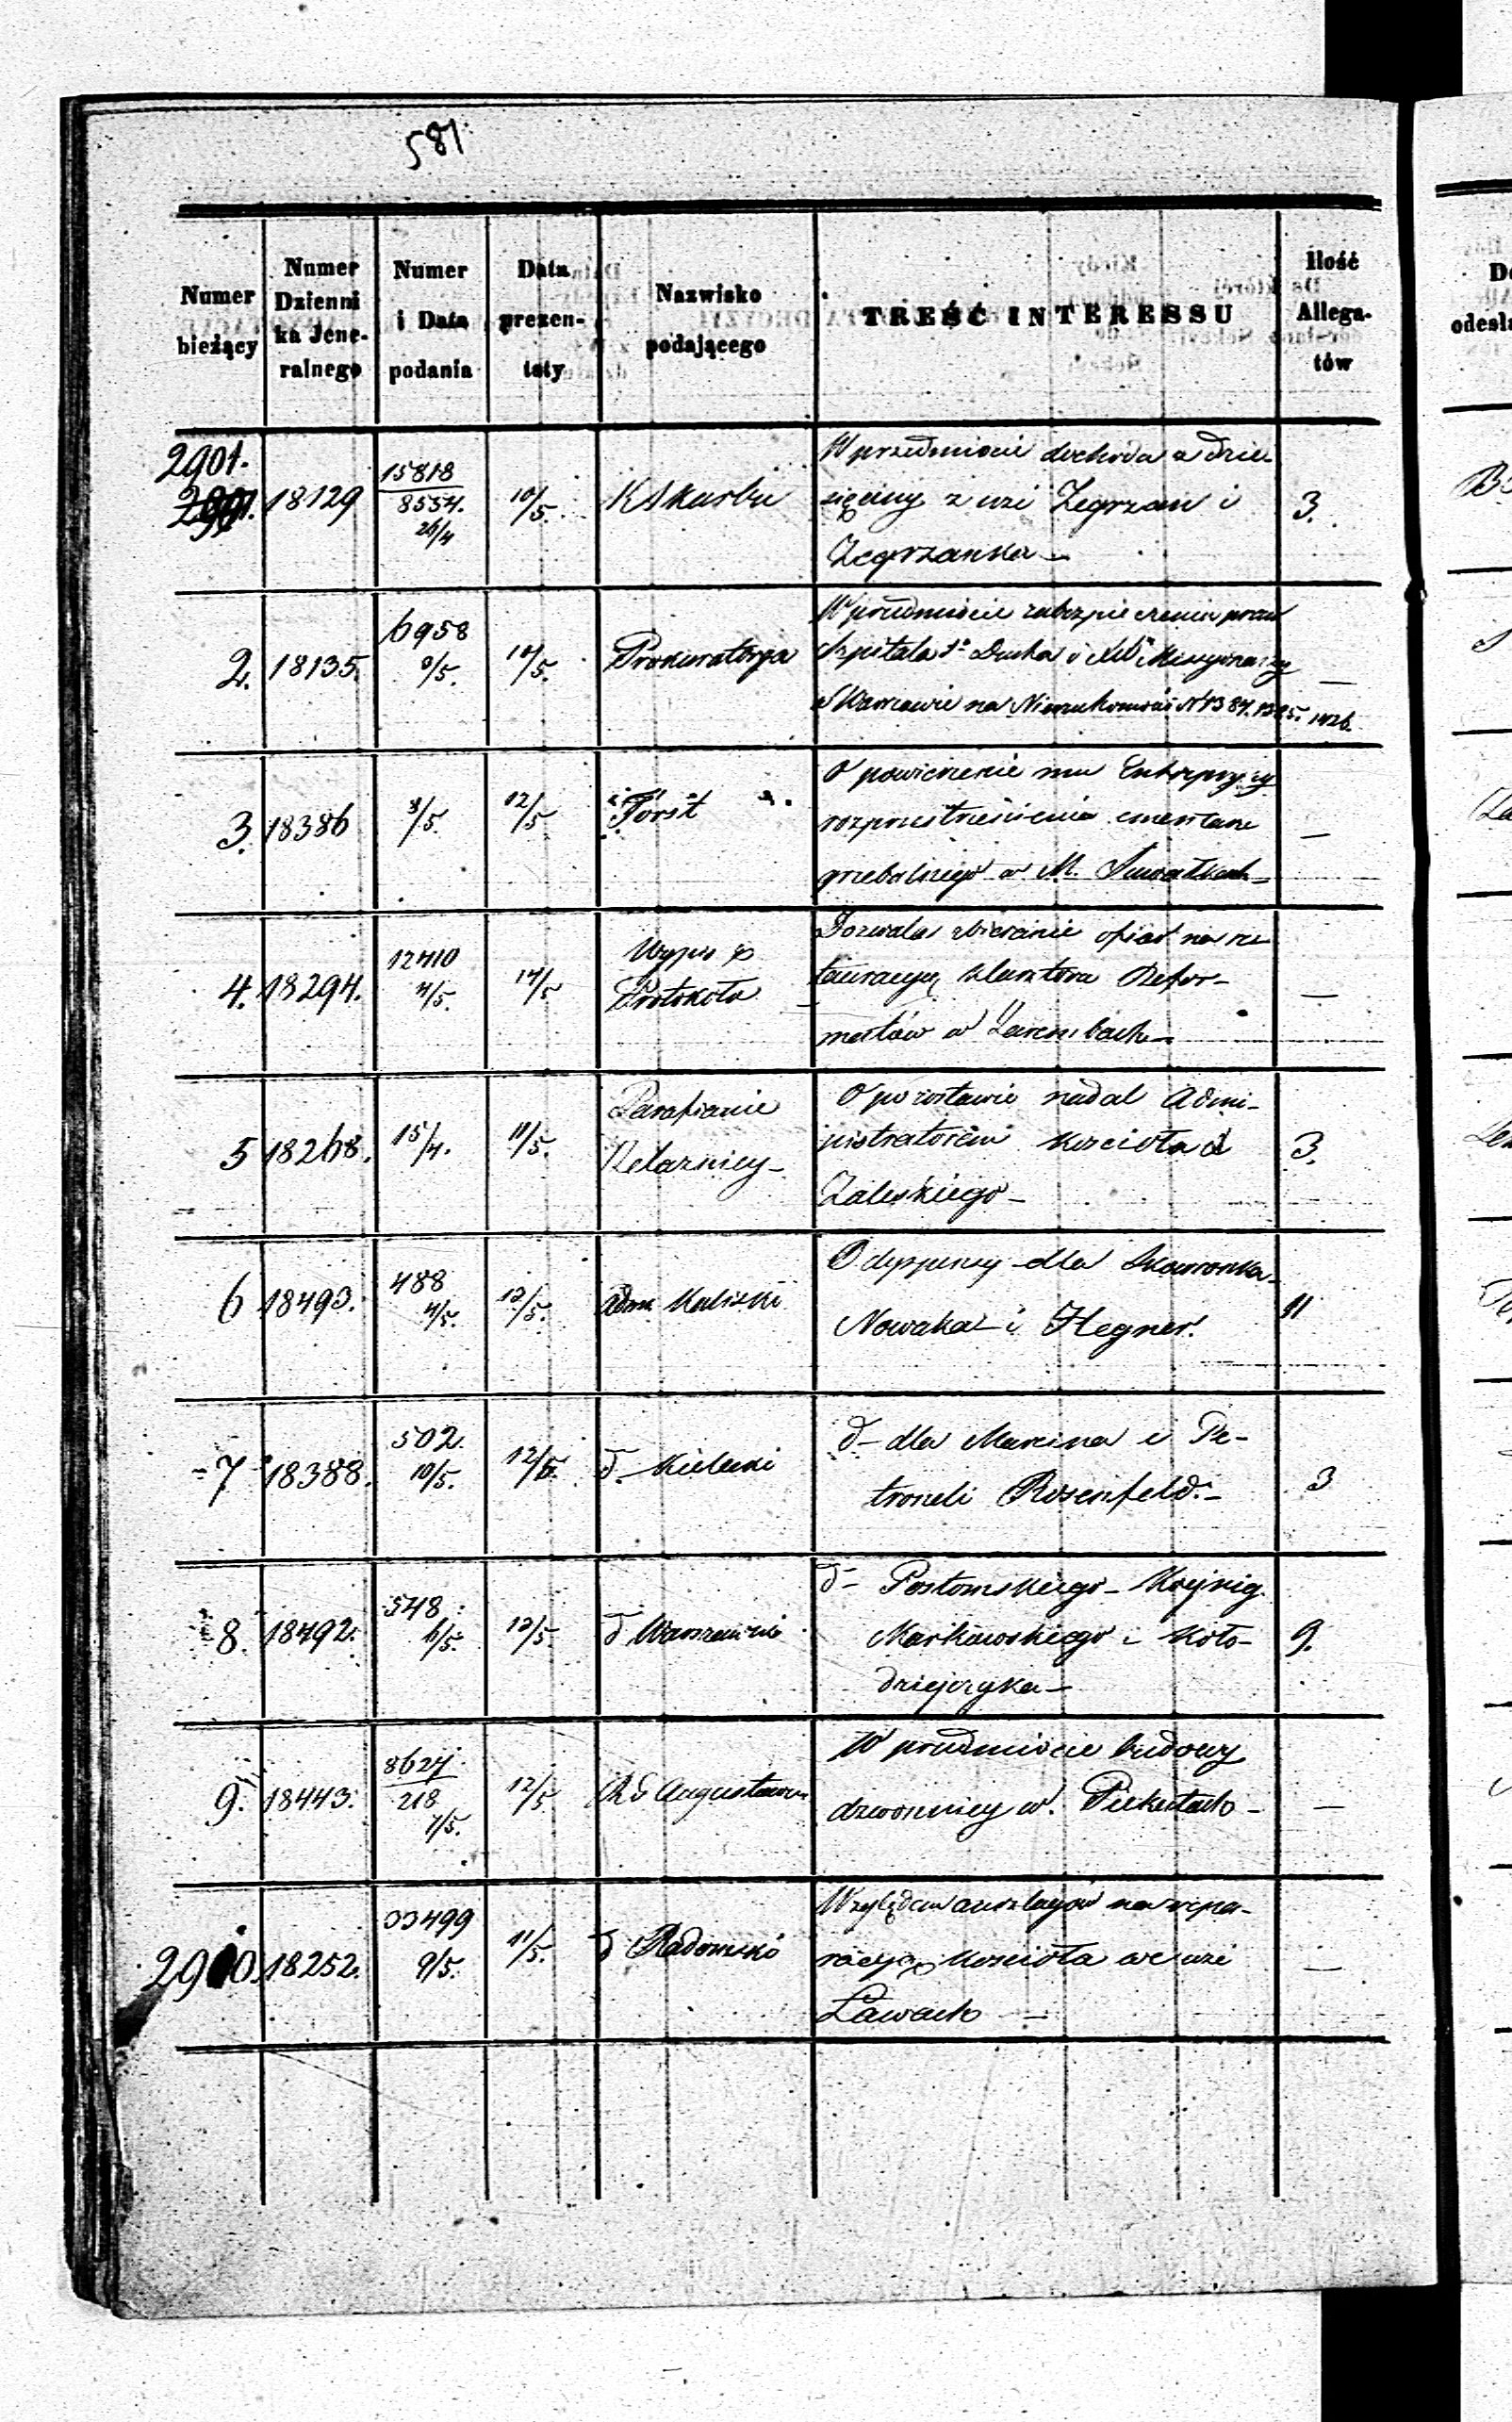 581.
Numer
bieżący
Numer
Dzienni
ka Jene-
ralnego
Numer
i Data
podania
Data
prezen-
taty
Nazwisko
podającego
TREŚĆ INTERESSU
Ilość
Allega-
tów
2901.
18129
15818
8554.
26/4
10/5.
KSkarbu
W przedmiocie dochodu z dzie-
sięciny z wsi Zegrzan i
Zegrzanka –
3.
2.
18135.
6958
9/5.
10/5.
Prokuratorya
W przedmiocie zabezpieczenia praw
Szpitala Sgo Ducha i Missyonarzy
w Warszawie na Nieruchomości N 1384. 1385. 1426.
—
3.
18386
8/5.
12/5
Forst
O powierzenie mu Entrepryzy
rozprzestrzenienia cmentarza
grzebalnego w M. Suwałkach –
—
4.
18294.
12410
4/5.
14/5
Wypis z
Protokołu
Dozwala zbieranie ofiar na re
tauracyę klasztoru Refor-
matów w Zarembach –
—
5
18268.
15/4.
11/5.
Parafianie
Żelazniey –
O pozostawie nadal Admi-
nistratorem kościoła X
Zaleskiego –
3.
6
18493.
488
4/5.
12/5.
Adm. Kaliski
O dyspensy dla Skawronka
Nowaka i Hegner.
11
7
18388.
502.
10/5.
12/5.
d. Kielecki
d– dla Marcina i Pe-
troneli Rosenfeld. –
3
8.
18492.
548
6/5.
12/5.
d Warszawski
d– Postomskiego – Koynig.
Markowskiego i Koło-
dziejczyka –
9.
9.
18443.
8627
218
7/5.
12/5.
RG Augustows.
W przedmiocie budowy
dzwonnicy w. Piekutach –
—
2910.
18252.
33499
9/5.
11/5.
d Radomski
Względem anszlagów na repa-
racyę kościoła we wsi
Ławach —
—